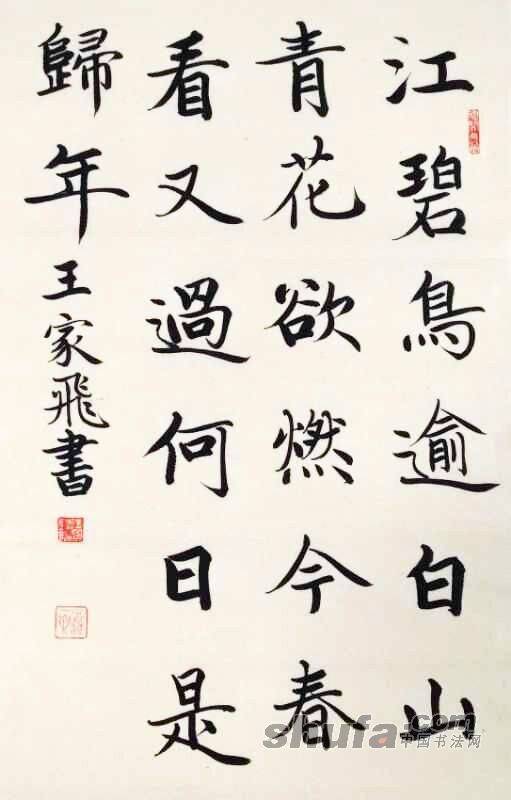 江碧鳥逾白山
青花欲燃今春
看又過何日是
歸年王家飛書
shufa.com
中国书法网